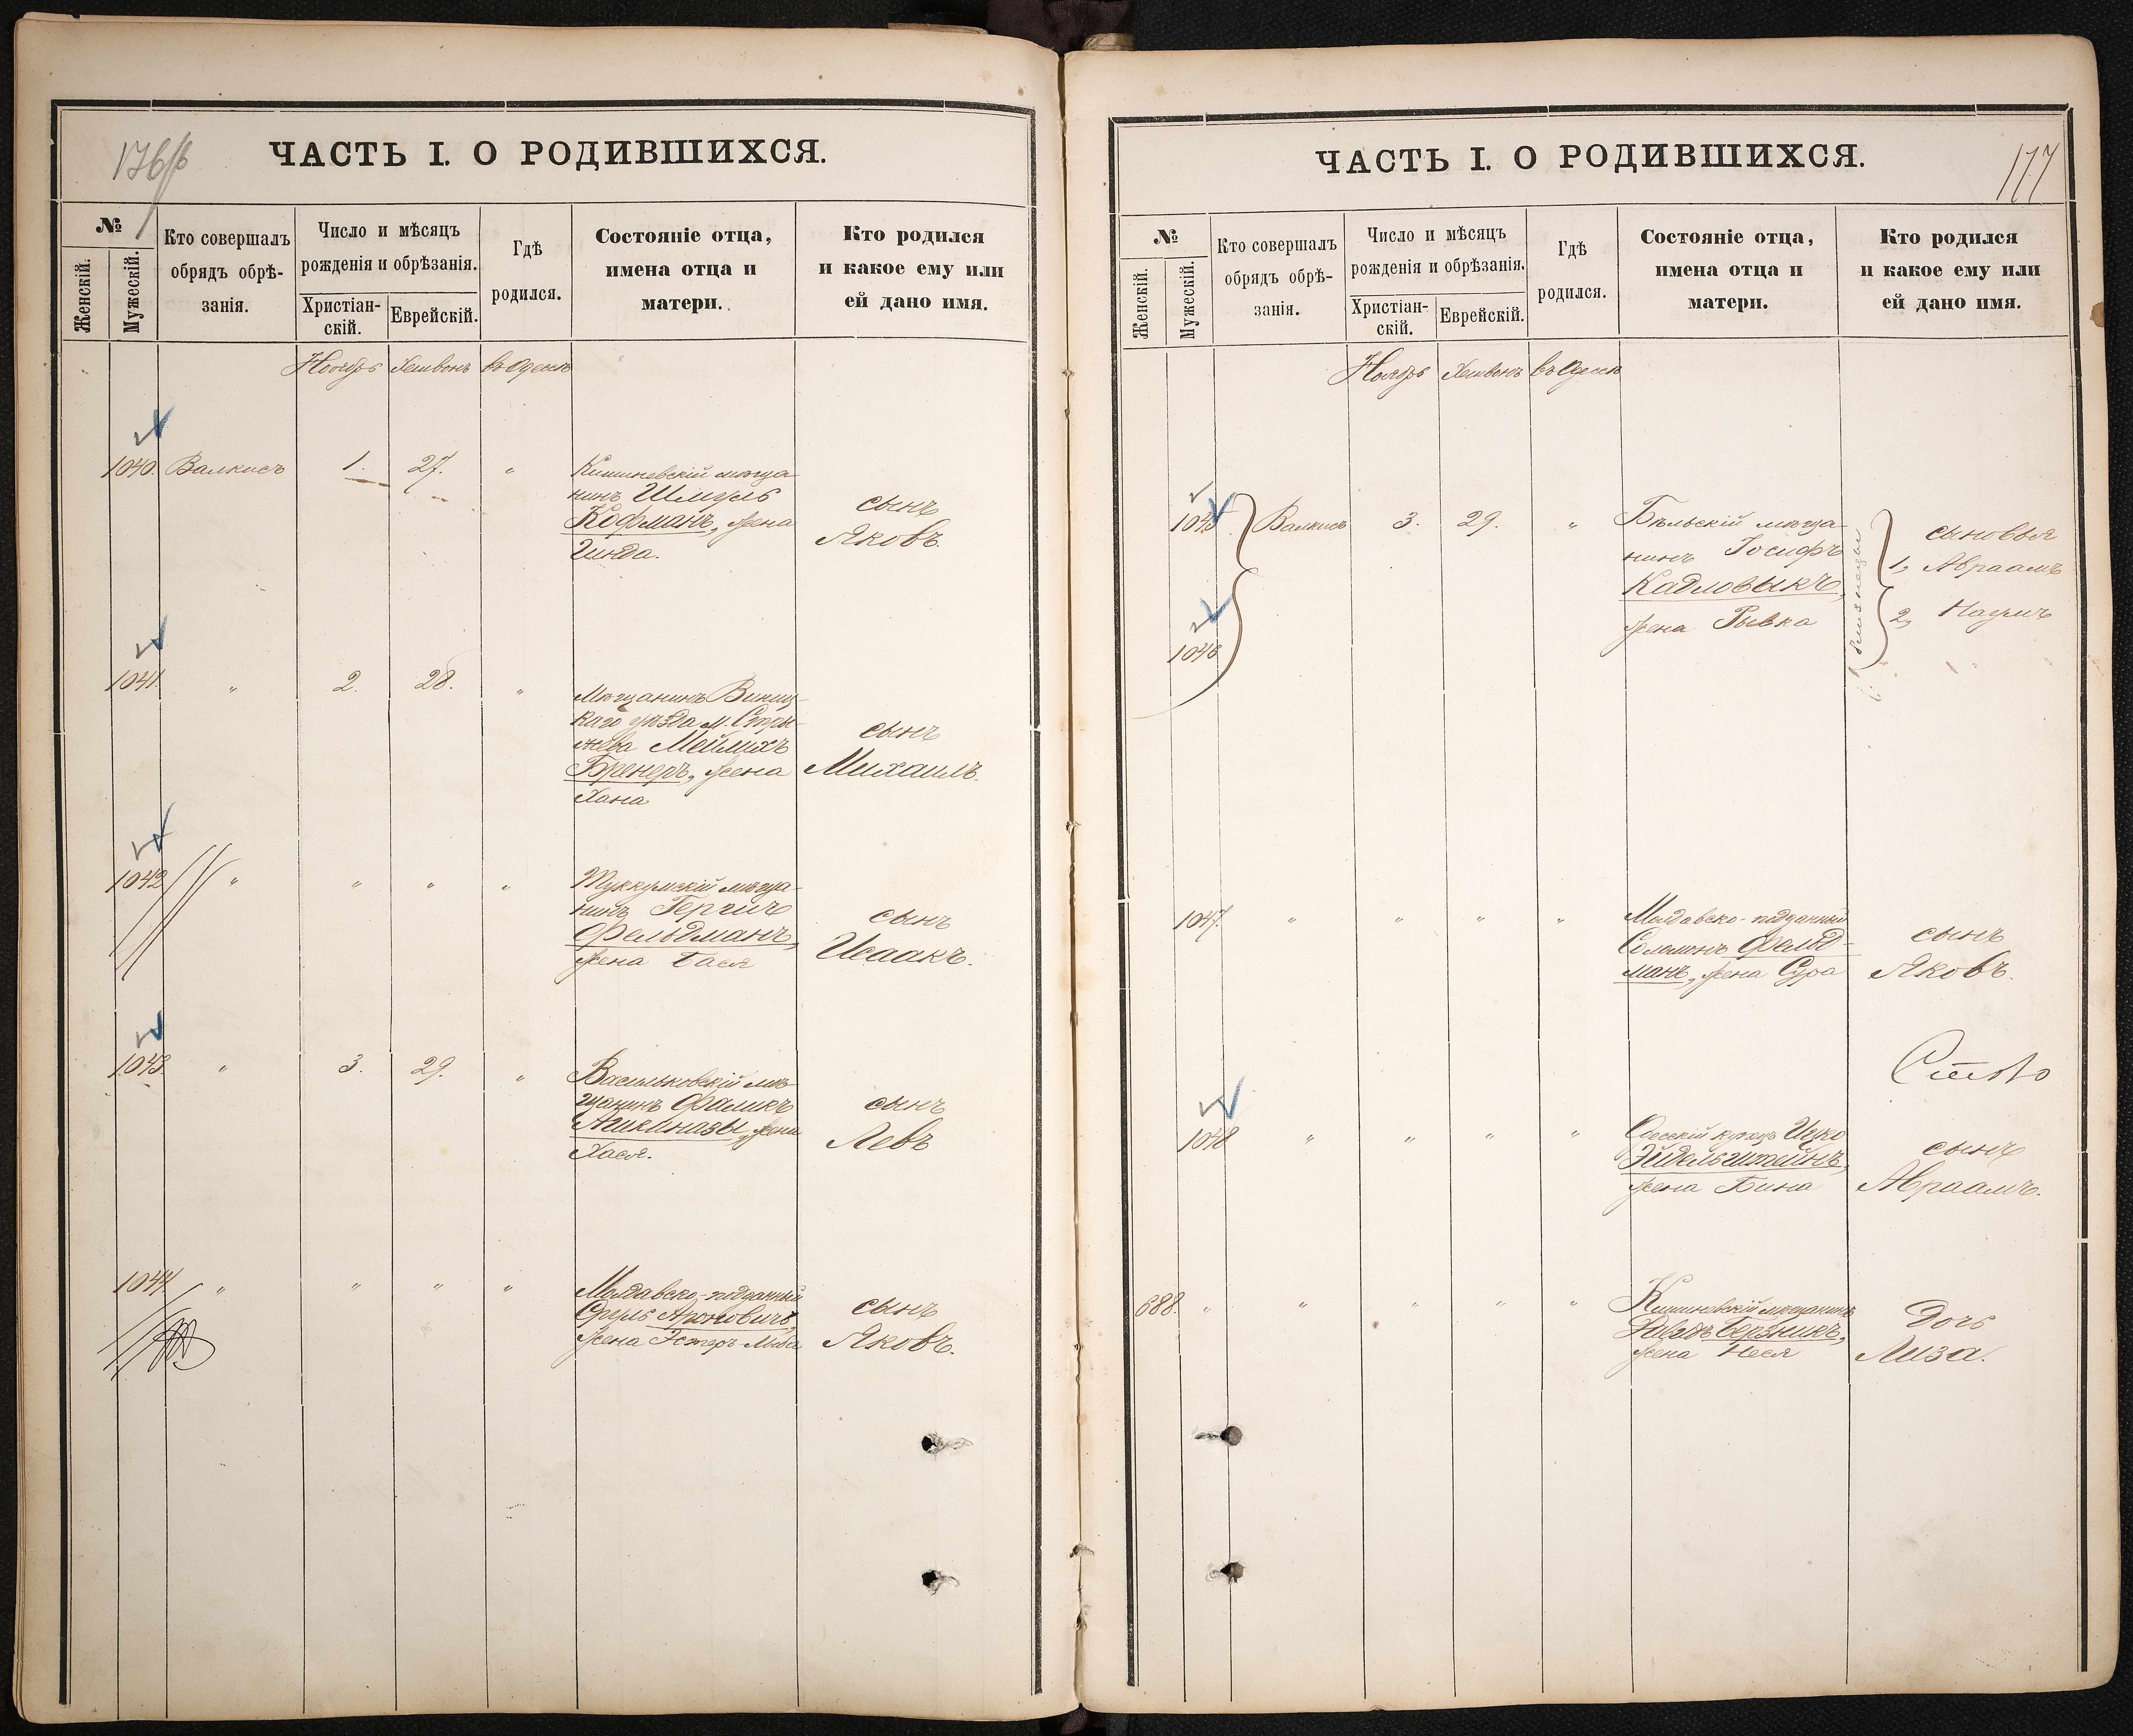 176
ЧАСТЬ I. О РОДИВШИХСЯ.
№
Женскій.
Мужескій.
Кто совершалъ
обрядъ обрѣ-
занія.
Число и мѣсяцъ
рожденія и обрѣзанія.
Христіан-
скій.
Еврейскій.
Гдѣ
родился.
Состояніе отца,
имена отца и
матери.
Кто родился
и какое ему или
ей дано имя.
Ноябрь Хешвонъ въ Одессѣ
1040. Валкисъ 1. 27. „ Кишиневскій мѣща-
нинъ Шмуль
Кофманъ, жена
Гинда.
сынъ
Яковъ.
1041. „ 2. 28. „ Мѣщанинъ Винниц-
каго уѣзда м. Стры-
жева Мейлихъ
Бренеръ, жена
Хана
сынъ
Михаилъ.
1042 „ „ „ „ Туккумскій мѣща-
нинъ
Фельдманъ,
жена Бася
сынъ
Исаакъ.
1043. „ 3. 29. „ Васильковскій мѣ-
щанинъ Фаликъ
Ашкиназы, жена
Хася.
сынъ
Левъ
1044 „ „ „ „ Молдавско-подданный
Сруль Ароновичъ,
жена Эстеръ-Либа
сынъ
Яковъ.
177
ЧАСТЬ I. О РОДИВШИХСЯ.
№
Женскій.
Мужескій.
Кто совершалъ
обрядъ обрѣ-
занія.
Число и мѣсяцъ
рожденія и обрѣзанія.
Христіан-
скій.
Еврейскій.
Гдѣ
родился.
Состояніе отца,
имена отца и
матери.
Кто родился
и какое ему или
ей дано имя.
Ноябрь Хешвонъ въ Одессѣ
1045 Валкисъ 3. 29. „ Бѣльскій мѣща-
нинъ Іосифъ
Кадловыкъ,
жена Рывка
близнецы
сыновья
1, Авраамъ
2, Наумъ
1046
1047. „ „ „ „ Молдавско-подданный
Соломонъ Фельд-
манъ, жена Сура
сынъ
Яковъ.
1048 „ „ „ „ Одесскій купецъ Ицко
Эйдельштейнъ,
жена Бина
сынъ
Авраамъ.
688. „ „ „ „ „ Кишиневскій мѣщанинъ
Давидъ Берзникъ,
жена Нeся
дочь
Лиза.